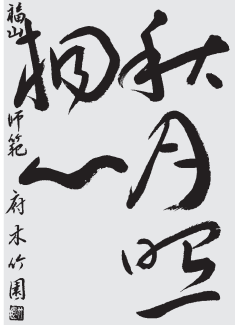 秋月照
心
福山 師範 府木竹園